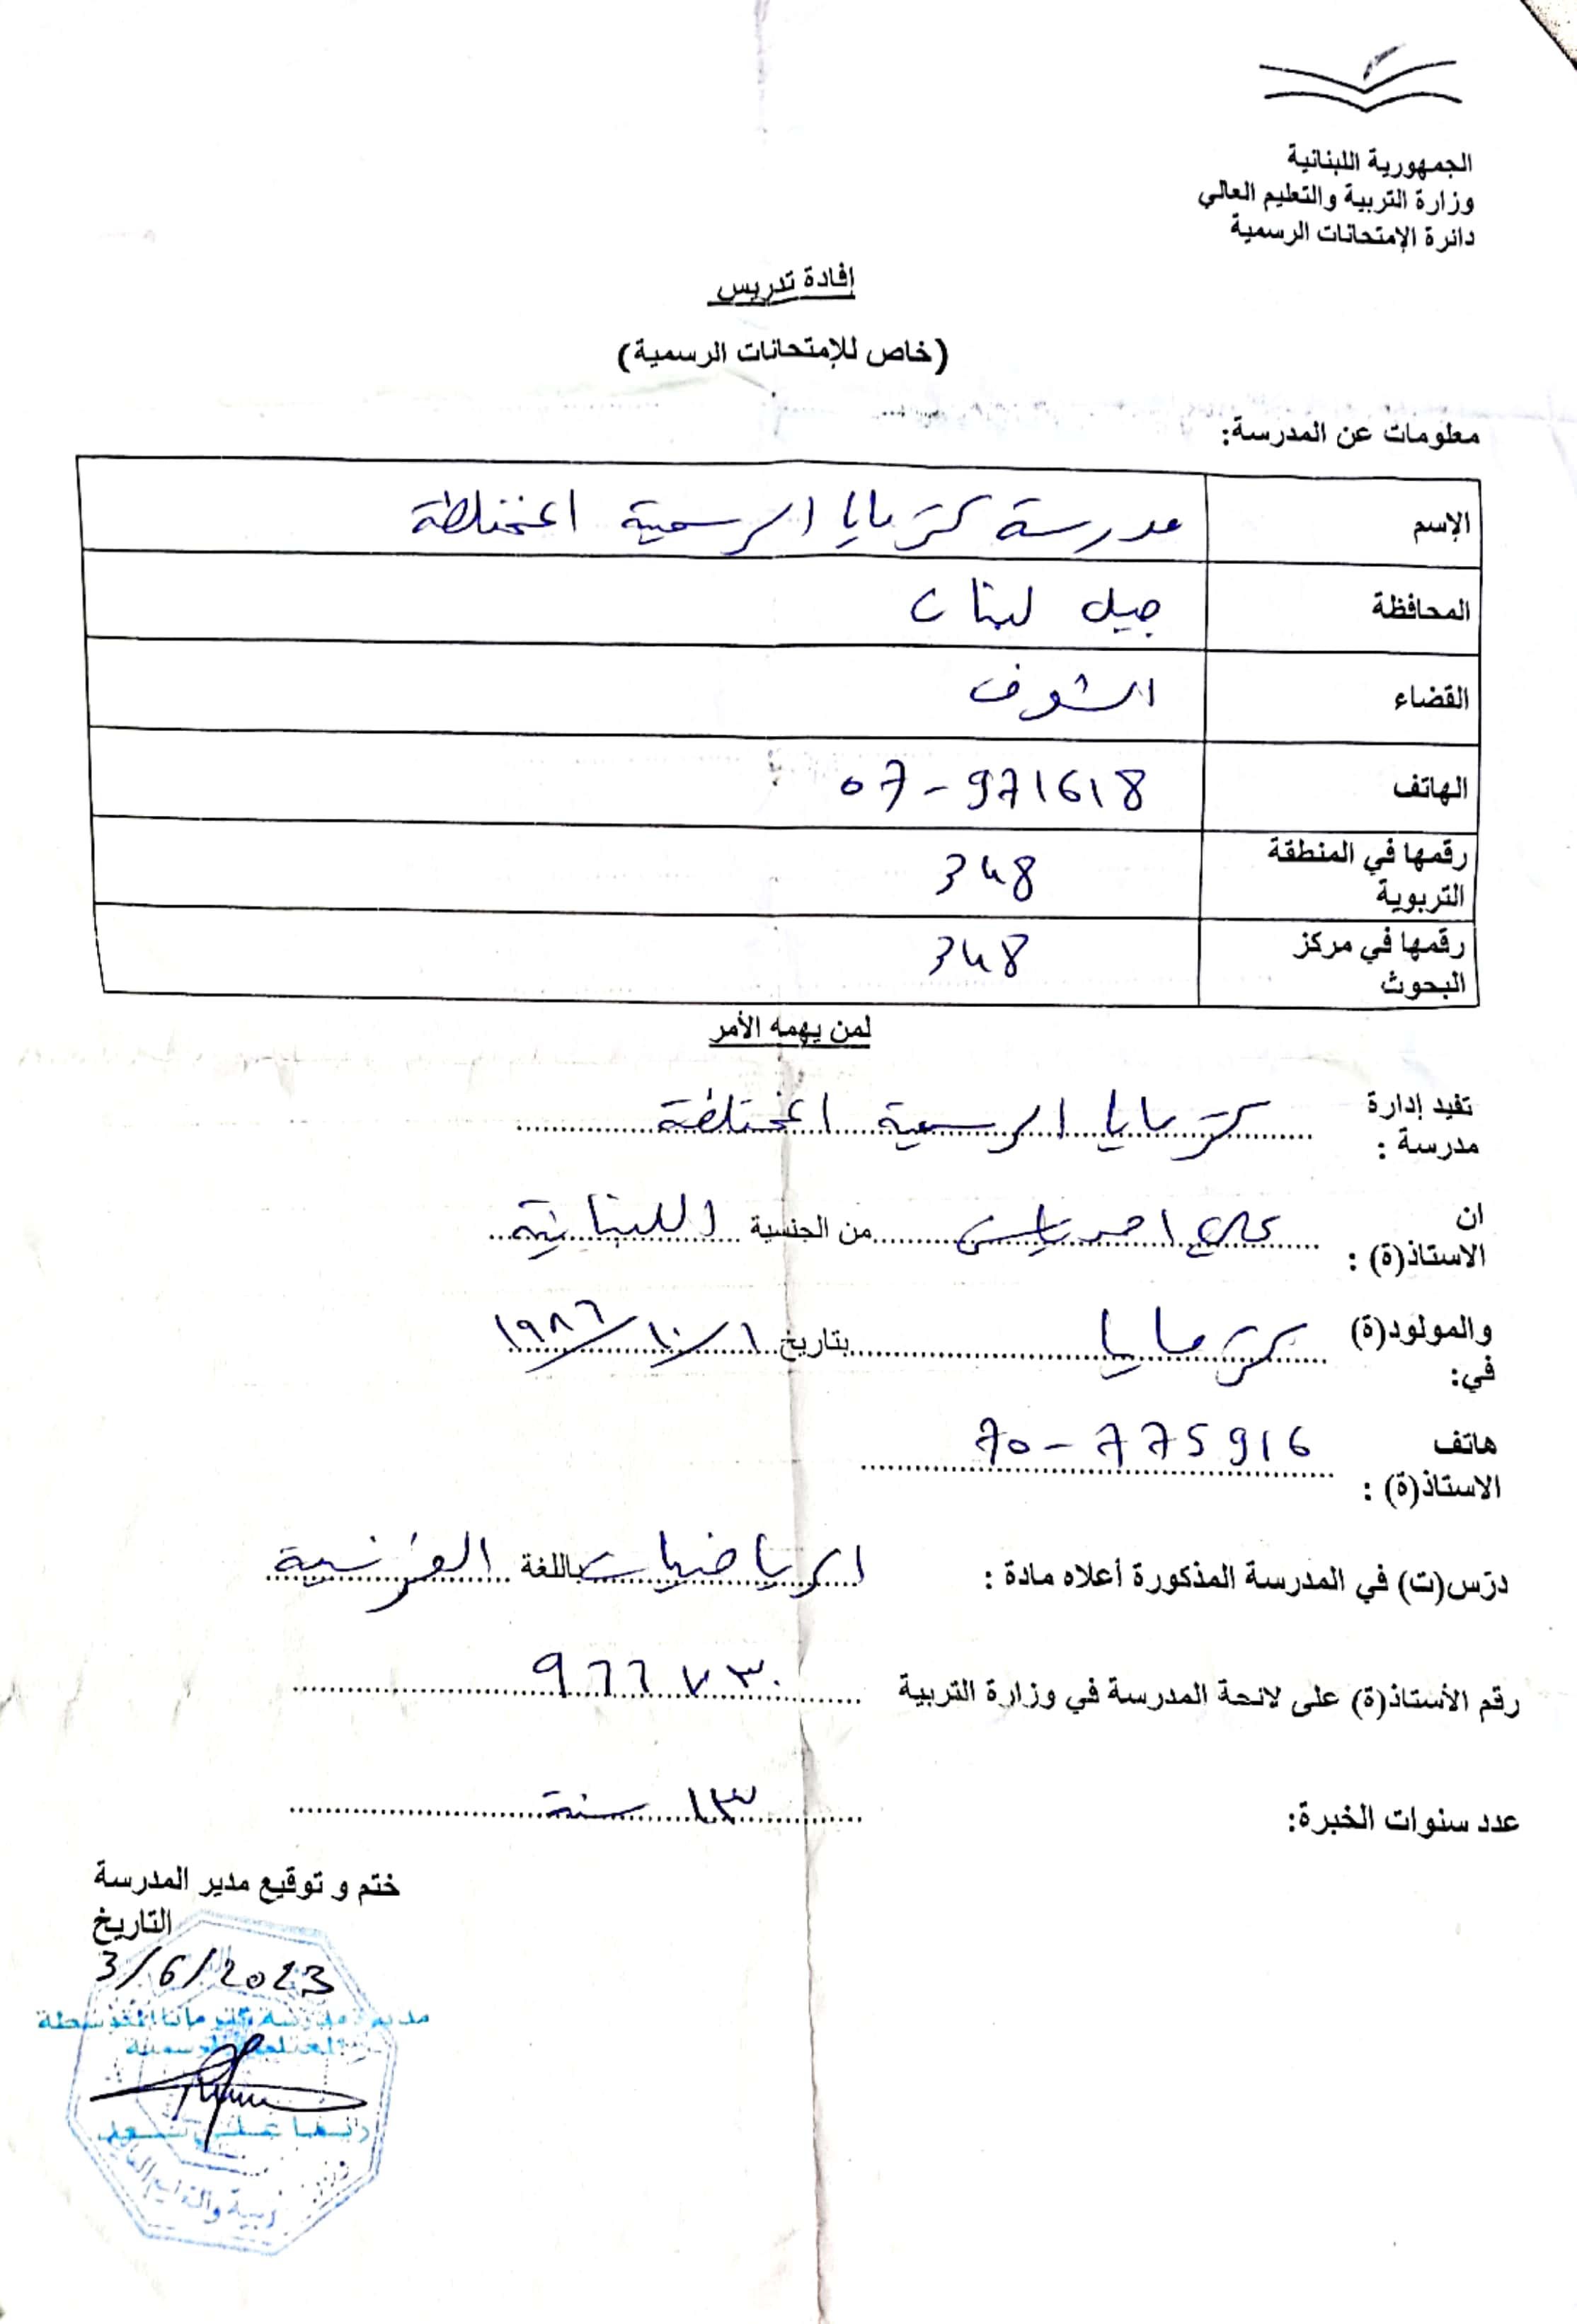 الجمهورية اللبنانية
وزارة التربية والتعليم العالي
دائرة الإمتحانات الرسمية
إفادة تدريس
(خاص للإمتحانات الرسمية)
معلومات عن المدرسة:
الإسم مدرسة كترمايا الرسمية المختلطة
المحافظة جبل لبنان
القضاء الشوف
الهاتف 07-971618
رقمها في المنطقة التربوية 348
رقمها في مركز البحوث 348
لمن يهمه الأمر
تفيد إدارة مدرسة : كترمايا الرسمية المختلطة
ان الاستاذ(ة) : علي احمد ياسين من الجنسية اللبنانية
والمولود(ة) في: كترمايا بتاريخ ١/١٠/١٩٨٦
هاتف الاستاذ(ة) : 70-775916
درّس(ت) في المدرسة المذكورة أعلاه مادة : الرياضيات باللغة الفرنسية
رقم الأستاذ(ة) على لائحة المدرسة في وزارة التربية ٩٦٦٧٣٠
عدد سنوات الخبرة: ١٣ سنة
ختم و توقيع مدير المدرسة
التاريخ
3/6/2023
مديرة مدرسة كترمايا المتوسطة
المختلطة الرسمية